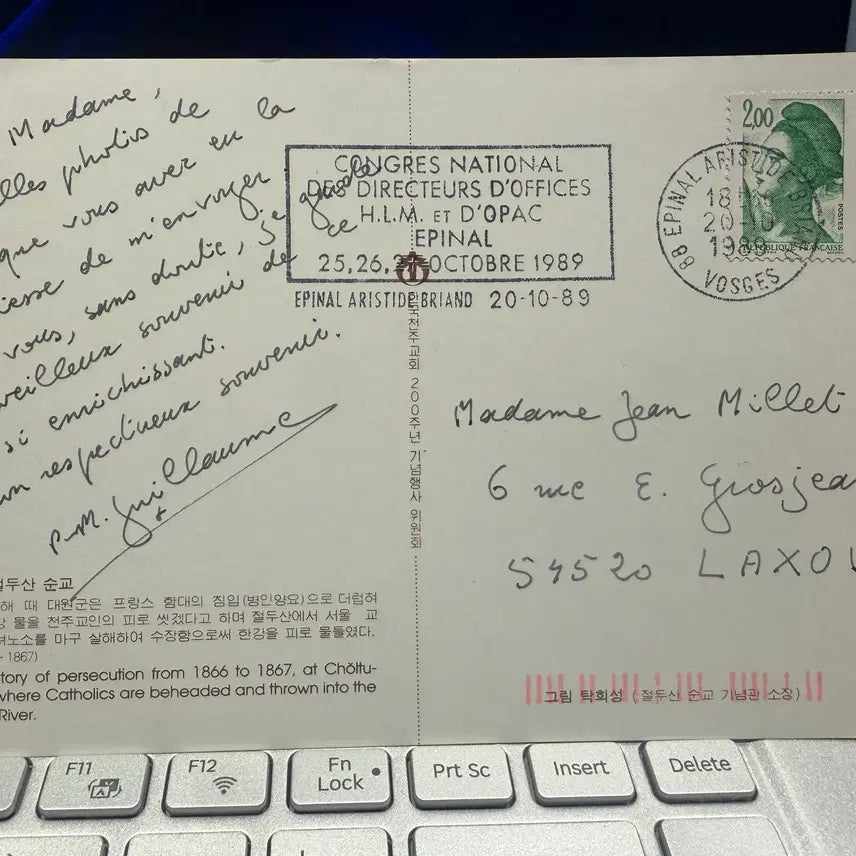 Madame,
elles photos de
que vous avez eu la
esse de m'envoyer
vous, sans doute, je garde
veilleux souvenir de ce
si enrichissant.
on respectueux souvenir.
P.M. Guillaume
CONGRES NATIONAL
DES DIRECTEURS D'OFFICES
H.L.M. ET D'OPAC
EPINAL
25,26,27 OCTOBRE 1989
EPINAL ARISTIDE BRIAND 20-10-89
2,00
POSTES
REPUBLIQUE FRANÇAISE
88 EPINAL ARISTIDE
18
20-10
1989
VOSGES
한국천주교회 200주년 기념행사 위원회
Madame Jean Millet
6 rue E. Grosjea
54520 LAXOU
절두산 순교
해 때 대원군은 프랑스 함대의 침입(병인양요)으로 더럽혀
강 물을 천주교인의 피로 씻겠다고 하며 절두산에서 서울 교
녀노소를 마구 살해하여 수장함으로써 한강을 피로 물들였다.
- 1867)
tory of persecution from 1866 to 1867, at Chŏltu-
where Catholics are beheaded and thrown into the
River.
그림 탁희성 (절두산 순교 기념관 소장)
F11
F12
Fn
Lock
Prt Sc
Insert
Delete